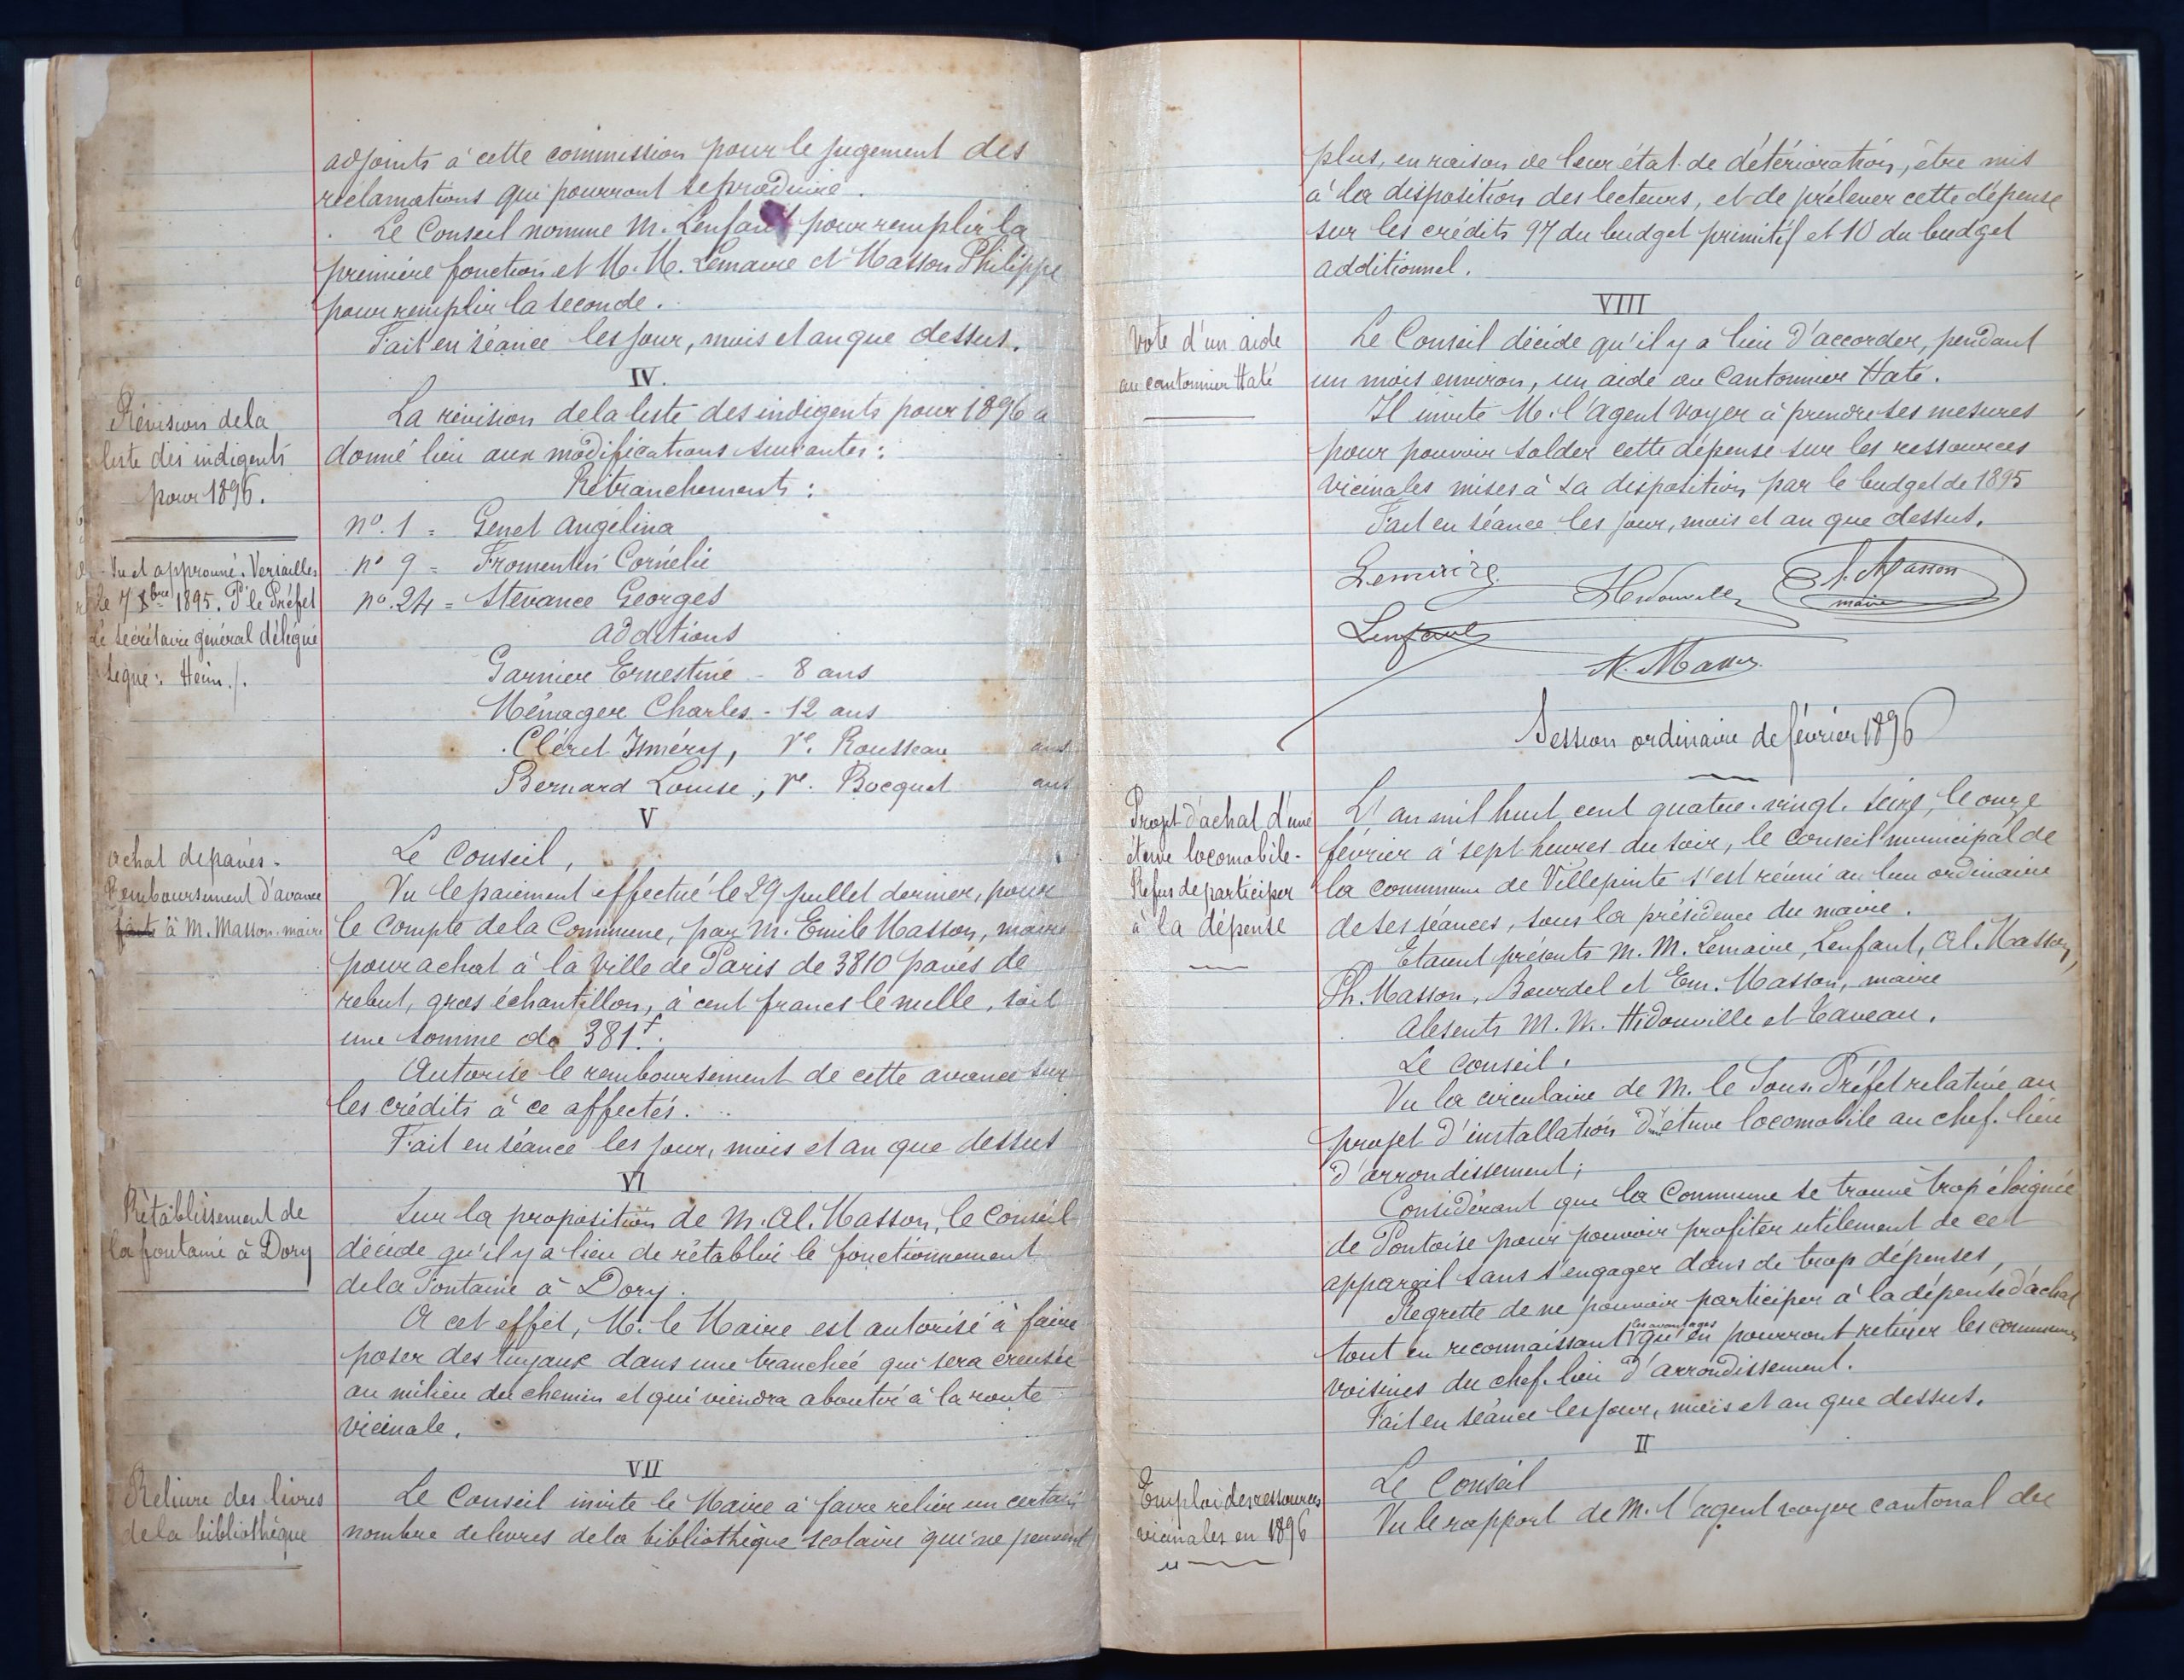 adjoints à cette commission pour le jugement des
réclamations qui pourront se produire.
Le Conseil nomme M. Lenfant pour remplir la
première fonction et M. M. Lemaire et Masson Philippe
pour remplir la seconde.
Fait en séance les jour, mois et an que dessus.
IV.
Révision de la
liste des indigents
pour 1896.
La révision de la liste des indigents pour 1896 a
donné lieu aux modifications suivantes :
Retranchements :
n°. 1 = Genet Angélina
n° 9 = Fromentin Cornélie
n°. 24 = Stévance Georges
Vu et approuvé. Versailles
le 7 Xbre 1895. Pr le Préfet
Le secrétaire général délégué
Signé : Heim ./.
Additions
Garnier Ernestine - 8 ans
Ménager Charles - 12 ans
Cléret Isméry, Ve. Rousseau ans
Bernard Louise, Ve. Bocquet ans
V
Achat de pavés.
Remboursement d'avance
faite à M. Masson, maire
Le Conseil,
Vu le paiement effectué le 29 juillet dernier, pour
le compte de la Commune, par M. Emile Masson, maire
pour achat à la Ville de Paris de 3810 pavés de
rebut, gros échantillon, à cent francs le mille, soit
une somme de 381f.
Autorise le remboursement de cette avance sur
les crédits à ce affectés.
Fait en séance les jour, mois et an que dessus
VI
Rétablissement de
la fontaine à Dory
Sur la proposition de M. Al. Masson, le Conseil
décide qu'il y a lieu de rétablir le fonctionnement
de la Fontaine à Dory.
A cet effet, M. le Maire est autorisé à faire
poser des tuyaux dans une tranchée qui sera creusée
au milieu du chemin et qui viendra aboutir à la route
vicinale.
VII
Reliure des livres
de la bibliothèque
Le Conseil invite le Maire à faire relier un certain
nombre de livres de la bibliothèque scolaire qui ne peuvent
plus, en raison de leur état de détérioration, être mis
à la disposition des lecteurs, et de prélever cette dépense
sur les crédits 97 du budget primitif et 10 du budget
additionnel.
VIII
Vote d'un aide
au cantonnier Haté
Le Conseil décide qu'il y a lieu d'accorder, pendant
un mois environ, un aide au Cantonnier Haté.
Il invite M. l'Agent Voyer à prendre ses mesures
pour pouvoir solder cette dépense sur les ressources
vicinales mises à sa disposition par le budget de 1895
Fait en séance les jour, mois et an que dessus.
Lemaire
Hidouville
E. Masson
maire
Lenfant
A. Masson
Session ordinaire de février 1896
Projet d'achat d'une
étuve locomobile -
Refus de participer
à la dépense
L'an mil huit cent quatre-vingt-seize, le onze
février à sept heures du soir, le conseil municipal de
la commune de Villepinte s'est réuni au lieu ordinaire
de ses séances, sous la présidence du maire.
Etaient présents M. M. Lemaire, Lenfant, Al. Masson,
Ph. Masson, Bourdel et Em. Masson, maire
Absents M. M. Hidouville et Caveau.
Le Conseil,
Vu la circulaire de M. le Sous-Préfet relative au
projet d'installation d'étuve locomobile au chef-lieu
d'arrondissement ;
Considérant que la Commune se trouve trop éloignée
de Pontoise pour pouvoir profiter utilement de cet
appareil sans s'engager dans de trop dépenses,
Regrette de ne pouvoir participer à la dépense d'achat
tout en reconnaissant les avantages qu'en pourront retirer les communes
voisines du chef-lieu d'arrondissement.
Fait en séance les jour, mois et an que dessus.
II
Emploi des ressources
vicinales en 1896
Le Conseil
Vu le rapport de M. l'agent voyer cantonal du